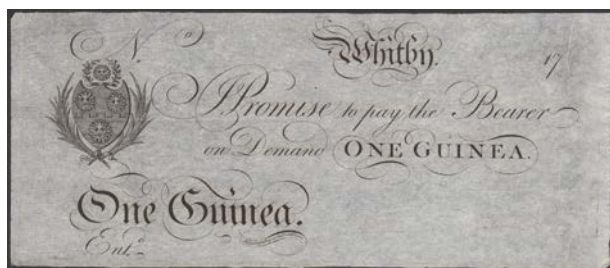 No Whitby. 17
I Promise to pay the Bearer
on Demand ONE GUINEA.
One Guinea.
Entd